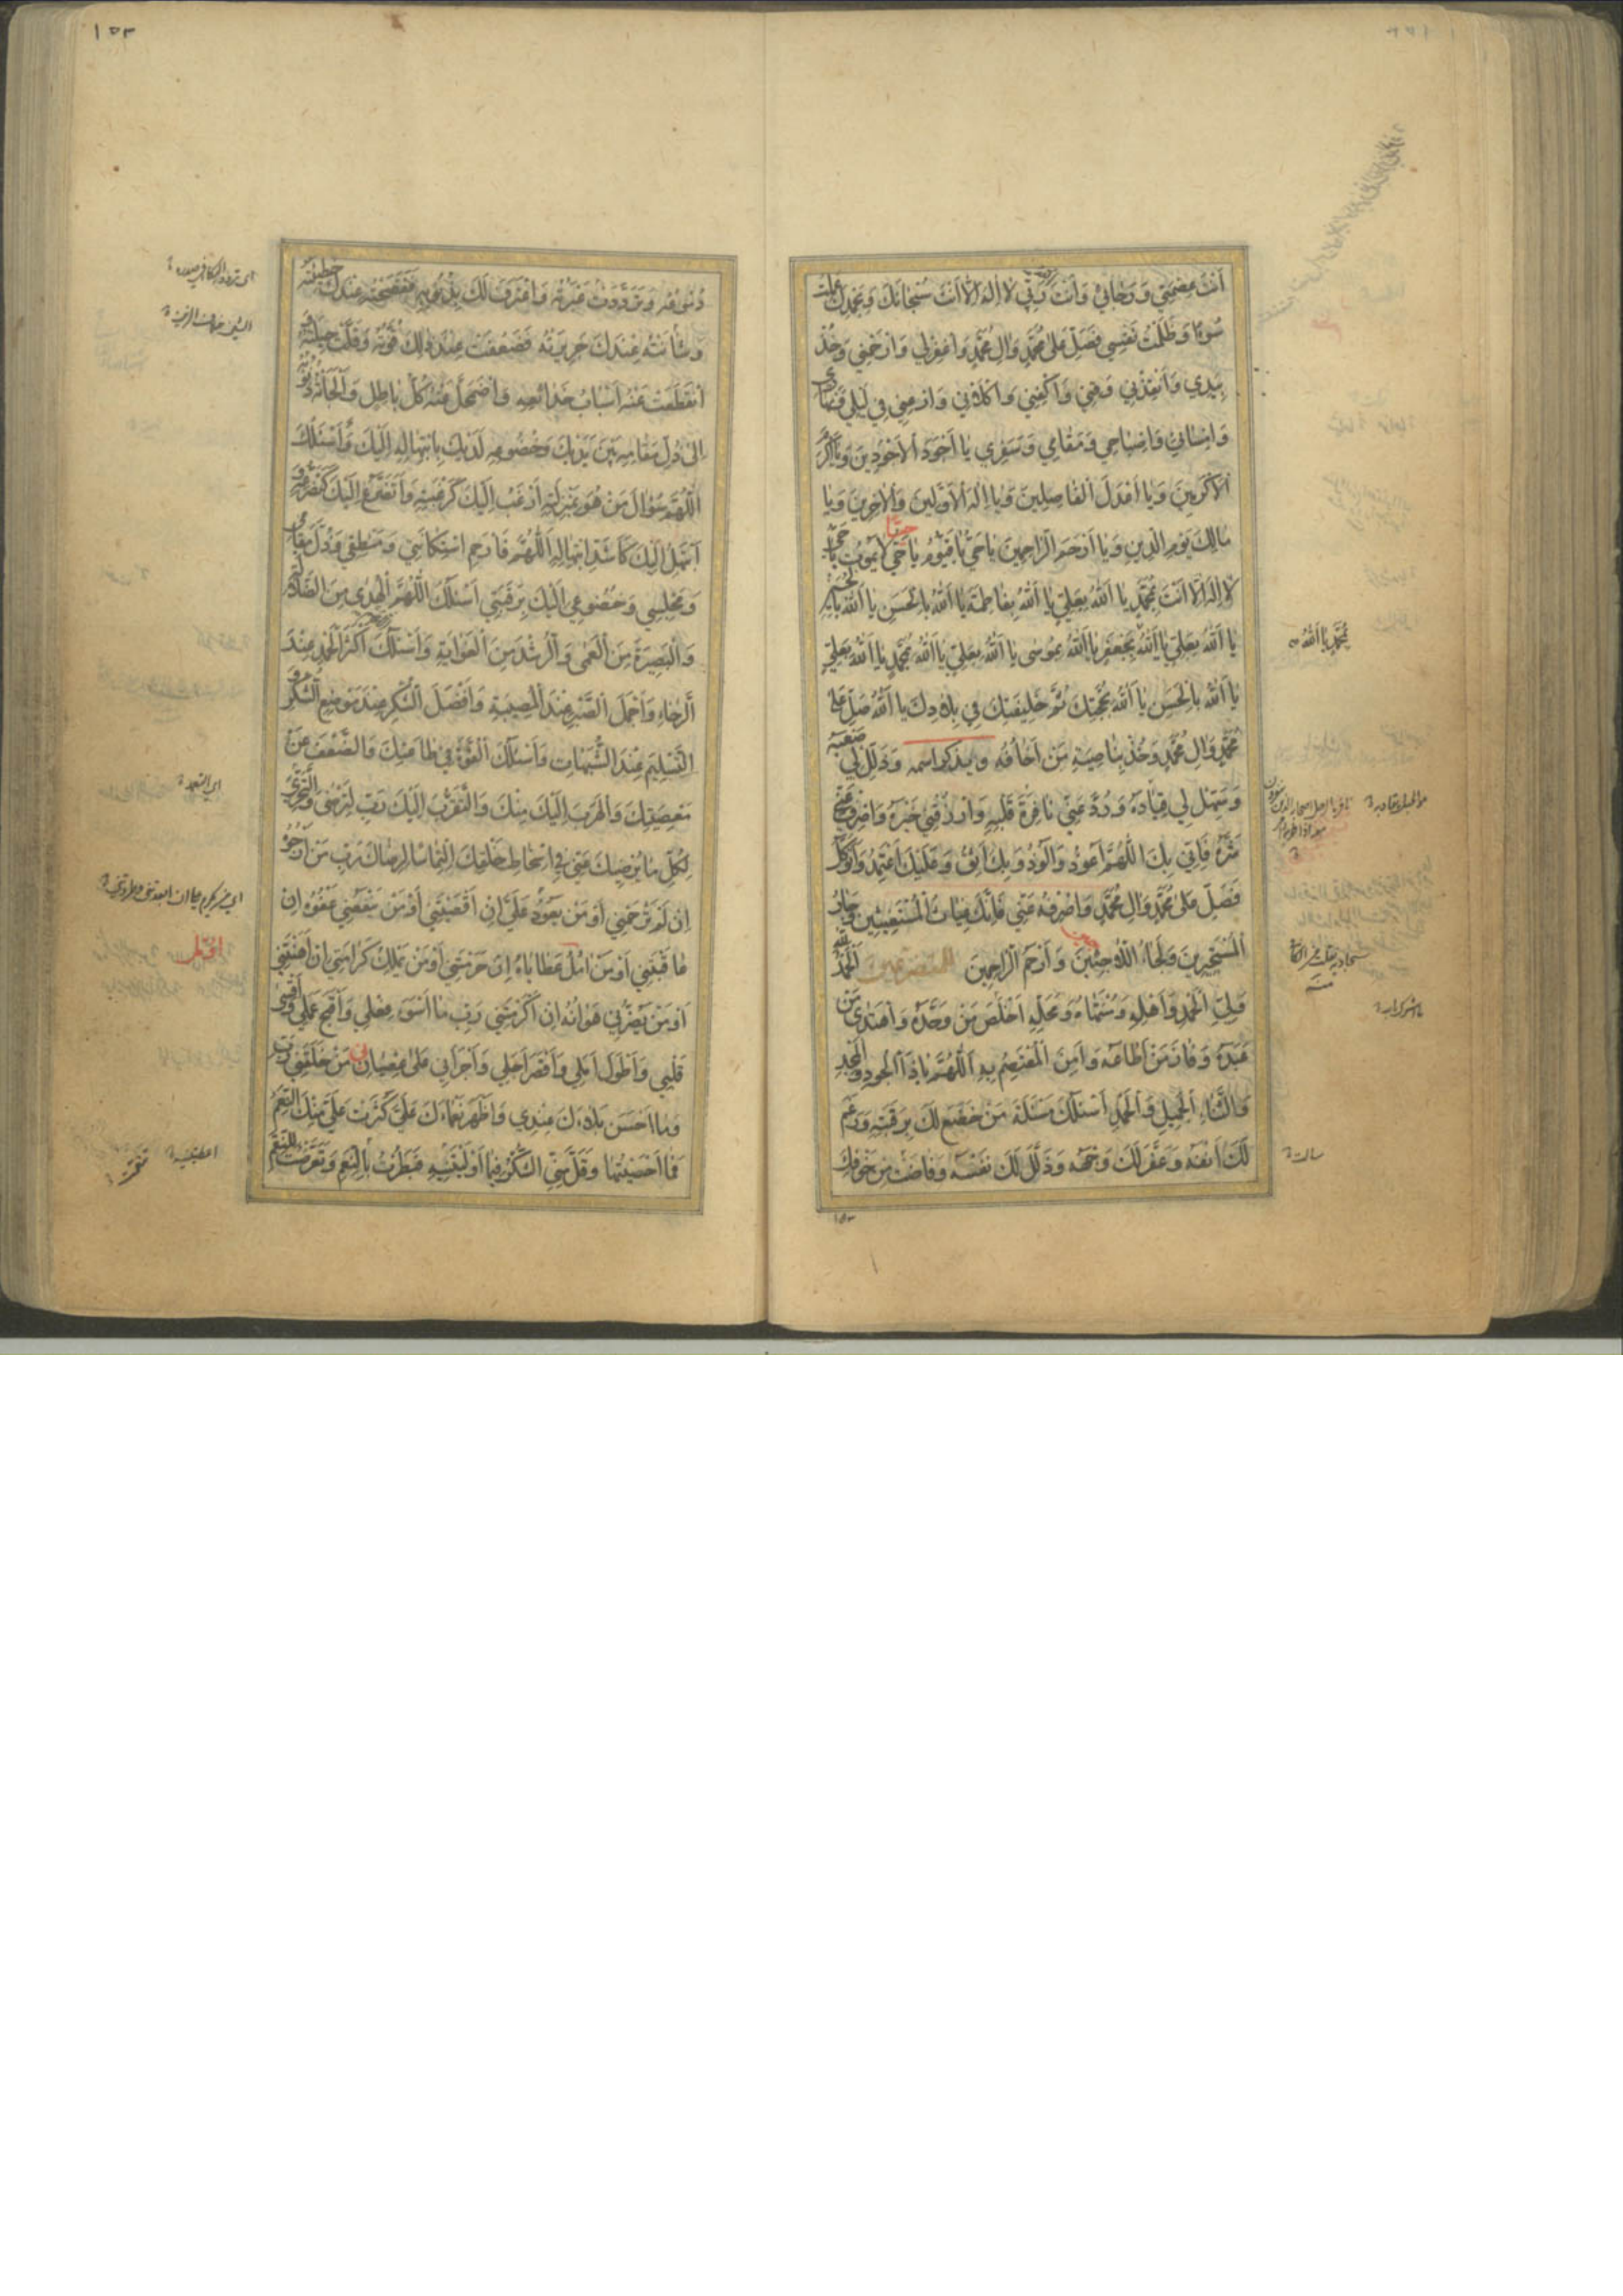 أَنْتَ عِصْمَتِي وَرَجَائِي وَأَنْتَ رَبِّي لَا إِلٰهَ إِلَّا أَنْتَ سُبْحَانَكَ وَبِحَمْدِكَ عَمِلْتُ
سُوءًا وَظَلَمْتُ نَفْسِي فَصَلِّ عَلَىٰ مُحَمَّدٍ وَآلِ مُحَمَّدٍ وَاغْفِرْ لِي وَارْحَمْنِي وَخُذْ
بِيَدِي وَأَنْقِذْنِي وَقِنِي وَاكْفِنِي وَاكْلَأْنِي وَارْعَنِي فِي لَيْلِي وَنَهَارِي
وَإِمْسَائِي وَإِصْبَاحِي وَمَقَامِي وَسَفَرِي يَا أَجْوَدَ الْأَجْوَدِينَ وَيَا أَكْرَمَ
الْأَكْرَمِينَ وَيَا أَعْدَلَ الْفَاصِلِينَ وَيَا إِلٰهَ الْأَوَّلِينَ وَالْآخِرِينَ وَيَا
مَالِكَ يَوْمِ الدِّينِ وَيَا أَرْحَمَ الرَّاحِمِينَ يَا حَيُّ يَا قَيُّومُ يَا حَيُّ لَا يَمُوتُ يَا حَيُّ
لَا إِلٰهَ إِلَّا أَنْتَ بِمُحَمَّدٍ يَا اَللّٰهُ بِعَلِيٍّ يَا اَللّٰهُ بِفَاطِمَةَ يَا اَللّٰهُ بِالْحَسَنِ يَا اَللّٰهُ بِالْحُسَيْنِ
يَا اَللّٰهُ بِعَلِيٍّ يَا اَللّٰهُ بِجَعْفَرٍ يَا اَللّٰهُ بِمُوسَى يَا اَللّٰهُ بِعَلِيٍّ يَا اَللّٰهُ بِمُحَمَّدٍ يَا اَللّٰهُ بِعَلِيٍّ
بِمُحَمَّدٍ يَا اَللّٰهُ
يَا اَللّٰهُ بِالْحَسَنِ يَا اَللّٰهُ بِحُجَّتِكَ ثُمَّ خَلِيفَتِكَ فِي بِلَادِكَ يَا اَللّٰهُ صَلِّ عَلَى
مُحَمَّدٍ وَآلِ مُحَمَّدٍ وَخُذْ بِنَاصِيَةِ مَنْ أَخَافُهُ وَيُذْكَرُ اسْمُهُ وَذَلِّلْ لِي صَعْبَهُ
وَسَهِّلْ لِي قِيَادَهُ وَرُدَّ عَنِّي نَافِرَةَ قَلْبِهِ وَارْزُقْنِي خَيْرَهُ وَاصْرِفْ عَنِّي
شَرَّهُ فَإِنِّي بِكَ اللّٰهُمَّ أَعُوذُ وَأَلُوذُ وَبِكَ أَثِقُ وَعَلَيْكَ أَعْتَمِدُ وَأَتَوَكَّلُ
فَصَلِّ عَلَى مُحَمَّدٍ وَآلِ مُحَمَّدٍ وَاصْرِفْهُ عَنِّي فَإِنَّكَ غِيَاثُ الْمُسْتَغِيثِينَ وَجَارُ
الْمُسْتَجِيرِينَ وَلَجَأُ اللَّاجِئِينَ وَأَرْحَمُ الرَّاحِمِينَ الْحَمْدُ لِلّٰهِ
وَلِيِّ الْحَمْدِ وَأَهْلِهِ وَمُنْتَهَاهُ وَمَحَلِّهِ أَخْلَصَ مَنْ وَحَّدَهُ وَاهْتَدَى مَنْ
عَبَدَهُ وَفَازَ مَنْ أَطَاعَهُ وَأَمِنَ الْمُعْتَصِمُ بِهِ اَللّٰهُمَّ يَا ذَا الْجُودِ وَالْمَجْدِ
وَالثَّنَاءِ الْجَمِيلِ وَالْحَمْدِ أَسْأَلُكَ مَسْأَلَةَ مَنْ خَضَعَ لَكَ بِرَقَبَتِهِ وَرَغِمَ
لَكَ أَنْفُهُ وَعَفَّرَ لَكَ وَجْهَهُ وَذَلَّلَ لَكَ نَفْسَهُ وَفَاضَتْ مِنْ خَوْفِكَ
١٥٣
دُمُوعُهُ وَتَرَدَّدَتْ عَبْرَتُهُ وَاعْتَرَفَ لَكَ بِذُنُوبِهِ وَفَضَحَتْهُ عِنْدَكَ خَطِيئَتُهُ
وَشَانَتْهُ عِنْدَكَ جَرِيرَتُهُ فَضَعُفَتْ عِنْدَ ذٰلِكَ قُوَّتُهُ وَقَلَّتْ حِيلَتُهُ
انْقَطَعَتْ عَنْهُ أَسْبَابُ خَدَائِعِهِ وَاضْمَحَلَّ عَنْهُ كُلُّ بَاطِلٍ وَأَلْجَأَتْهُ ذُنُوبُهُ
إِلَى ذُلِّ مَقَامِهِ بَيْنَ يَدَيْكَ وَخُضُوعِهِ لَدَيْكَ بِابْتِهَالِهِ إِلَيْكَ وَأَسْأَلُكَ
اللّٰهُمَّ سُؤَالَ مَنْ هُوَ بِمَنْزِلَتِهِ أَرْغَبُ إِلَيْكَ كَرَغْبَتِهِ وَأَتَضَرَّعُ إِلَيْكَ كَتَضَرُّعِهِ وَ
أَبْتَهِلُ إِلَيْكَ كَأَشَدِّ ابْتِهَالِهِ اَللّٰهُمَّ فَارْحَمْ اسْتِكَانَتِي وَمَنْطِقِي وَذُلَّ مَقَامِي
وَمَجْلِسِي وَخُضُوعِي إِلَيْكَ بِرَقَبَتِي أَسْأَلُكَ اللّٰهُمَّ الْهُدَى مِنَ الضَّلَالَةِ
وَالْبَصِيرَةَ مِنَ الْعَمَى وَالرُّشْدَ مِنَ الْغَوَايَةِ وَأَسْأَلُكَ أَكْثَرَ الْحَمْدِ عِنْدَ
الرَّخَاءِ وَأَجْمَلَ الصَّبْرِ عِنْدَ الْمُصِيبَةِ وَأَفْضَلَ الشُّكْرِ عِنْدَ مَوْضِعِ الشُّكْرِ وَ
التَّسْلِيمَ عِنْدَ الشُّبُهَاتِ وَأَسْأَلُكَ الْقُوَّةَ فِي طَاعَتِكَ وَالضَّعْفَ عَنْ
مَعْصِيَتِكَ وَالْهَرَبَ إِلَيْكَ مِنْكَ وَالتَّقَرُّبَ إِلَيْكَ رَبِّ لِتَرْضَى وَالتَّحَرِّيَ
لِكُلِّ مَا يُرْضِيكَ عَنِّي فِي إِسْخَاطِ خَلْقِكَ الْتِمَاسًا لِرِضَاكَ رَبِّ مَنْ أَرْجُوهُ
إِنْ لَمْ تَرْحَمْنِي أَوْ مَنْ يَعُودُ عَلَيَّ إِنْ أَقْصَيْتَنِي أَوْ مَنْ يَنْفَعُنِي عَفْوُهُ إِنْ
عَاقَبْتَنِي أَوْ مَنْ آمُلُ عَطَايَاهُ إِنْ حَرَمْتَنِي أَوْ مَنْ يَمْلِكُ كَرَامَتِي إِنْ أَهَنْتَنِي
أَوْ مَنْ يَضُرُّنِي هَوَانُهُ إِنْ أَكْرَمْتَنِي رَبِّ مَا أَسْوَءَ فِعْلِي وَأَقْبَحَ عَمَلِي وَأَقْسَى
قَلْبِي وَأَطْوَلَ أَمَلِي وَأَقْصَرَ أَجَلِي وَأَجْرَأَنِي عَلَى عِصْيَانِ مَنْ خَلَقَنِي رَبِّ
وَمَا أَحْسَنَ بَلَاءَكَ عِنْدِي وَأَظْهَرَ نَعْمَاءَكَ عَلَيَّ كَثُرَتْ عَلَيَّ مِنْكَ النِّعَمُ
فَمَا أُحْصِيهَا وَقَلَّ مِنِّي الشُّكْرُ فِيمَا أَوْلَيْتَنِيهِ فَبَطِرْتُ بِالنِّعَمِ وَتَعَرَّضْتُ لِلنِّقَمِ